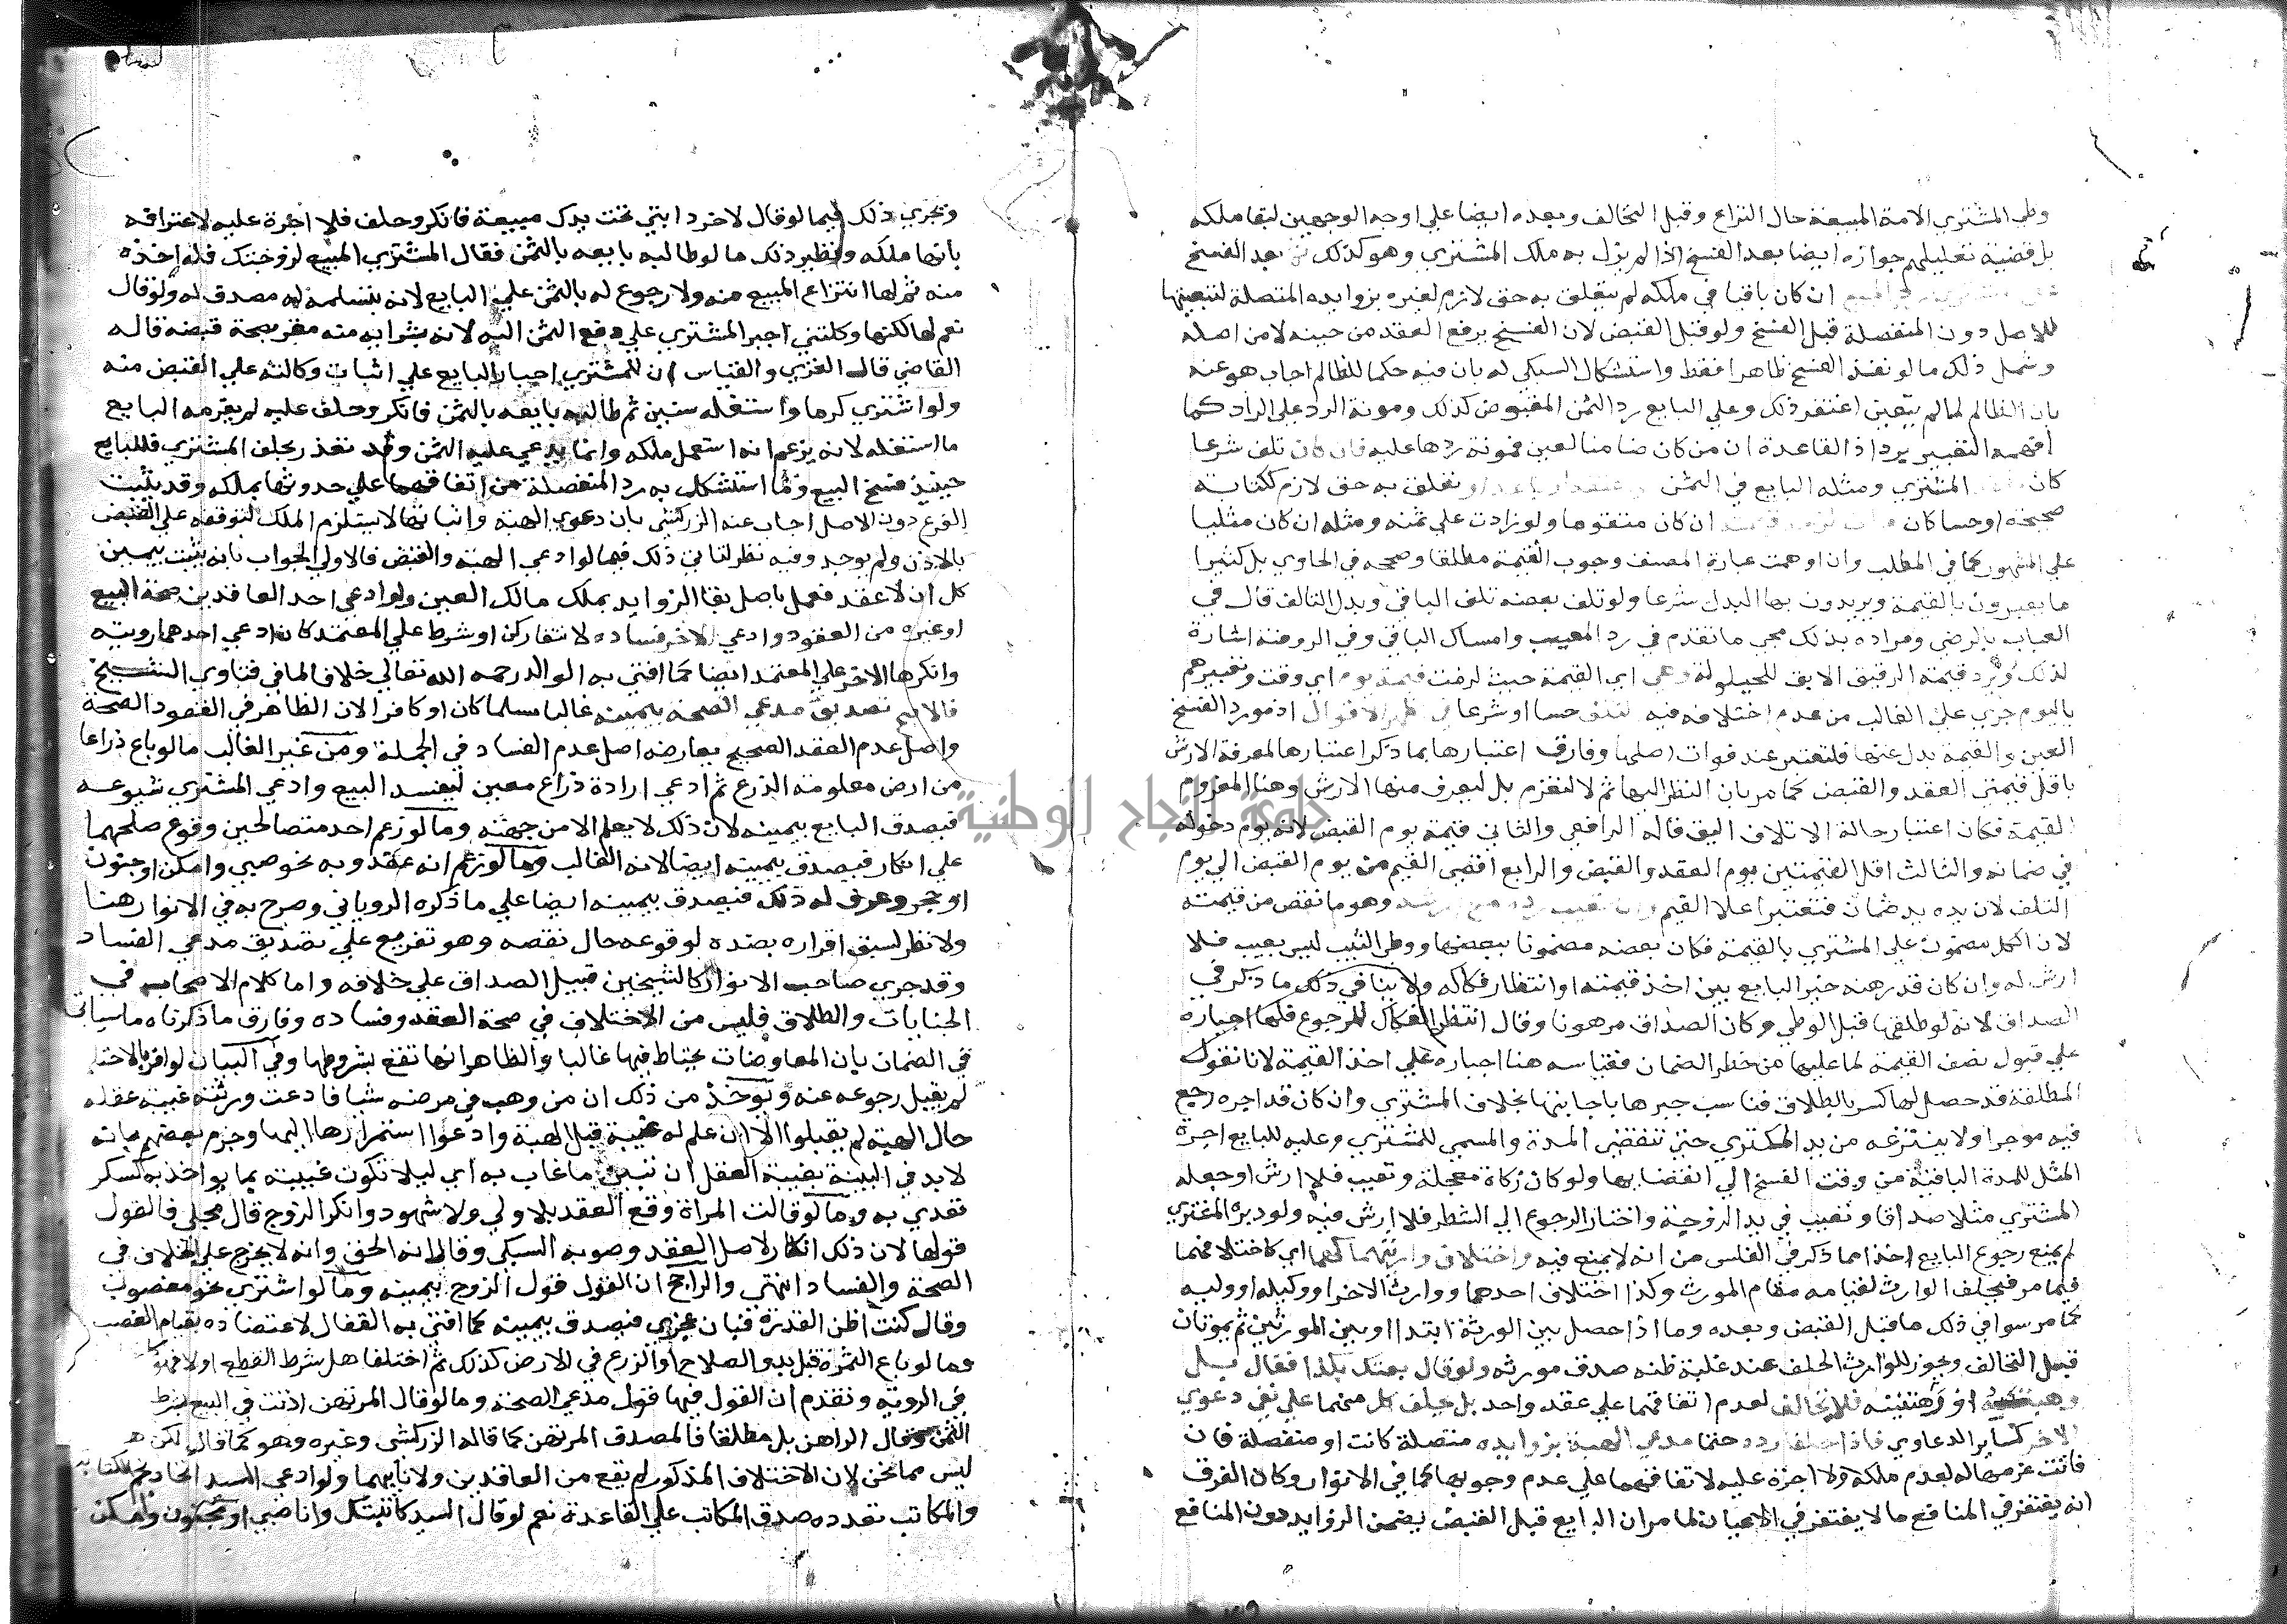 وطي المشتري الامة المبيعة حال النزاع وقبل التخالف وبعده ايضا علي اوجه الوجهين لبقا ملكه
بل قضية تعليلهم جوازه ايضا بعد الفسخ اذا لم يزل به ملك المشتري وهو كذلك ثم بعد الفسخ
المبيع ان كان باقيا في ملكه لم يتعلق به حق لازم لغيره بزوايده المتصلة لتبعيتها
للاصل دون المنفصلة قبل الفسخ ولو قبل القبض لان الفسخ يرفع العقد من حينه لا من اصله
وشمل ذلك ما لو نفذ الفسخ ظاهرا فقط واستشكال السبكي له بان فيه حكما للظالم اجاب هو عنه
بان الظالم لما لم يتعين اغتفر ذلك وعلي البايع رد الثمن المقبوض كذلك ومونة الرد علي الراد كما
افهمه التعبير برد اذ القاعدة ان من كان ضامنا لعين فمونة ردها عليه فان كان تلف شرعا
كان المشتري ومثله البايع في الثمن وتعلق به حق لازم ككتابة
صحيحة او حسا كان ان كان متقوما ولو زادت علي ثمنه ومثله ان كان مثليا
علي المشهور كما في المطلب وان اوهمت عبارة المصنف وجوب القيمة مطلقا وصححه في الحاوي بل كثيرا
ما يعبرون بالقيمة ويريدون بها البدل شرعا ولو تلف بعضه تلف الباقي وبدل التالف قال في
العباب بالرضي ومراده بذلك مجي ما تقدم في رد المعيب وامساك الباقي وفي الروضة اشارة
لذلك ويرد قيمة الرقيق الابق للحيلولة وهي اي القيمة حيث لزمت قيمة يوم اي وقت وتعبيرهم
باليوم جري علي الغالب من عدم اختلافه فيه التلف حسا او شرعا في اظهر الاقوال اذ مورد الفسخ
العين والقيمة بدل عنها فلتعتبر عند فوات اصلها وفارق اعتبارها بما ذكر اعتبارها لمعرفة الارش
باقل قيمتي العقد والقبض كما مر بان النظر اليها ثم لا لتغرم بل ليعرف منها الارش وهنا المغروم
القيمة فكان اعتبار حالة الاتلاف اليق قاله الرافعي والثاني قيمة يوم القبض لانه يوم دخوله
في ضمانه والثالث اقل القيمتين يوم العقد والقبض والرابع اقصي القيم من يوم القبض الي يوم
التلف لان يده يد ضمان فتعتبر اعلا القيم وهو ما نقص من قيمته
لان الكل مضمون علي المشتري بالقيمة فكان بعضه مضمونا ببعضها ووطي الثيب ليس بعيب فلا
ارش له وان كان قد رهنه خير البايع بين اخذ قيمته او انتظار فكاكه ولا ينافي ذلك ما ذكر في
الصداق لانه لو طلقها قبل الوطي وكان الصداق مرهونا وقال انتظر الفكاك للرجوع فلها اجباره
علي قبول نصف القيمة لما عليها من خطر الضمان فقياسه هنا اجباره علي اخذ القيمة لانا نقول
المطلقة قد حصل لها كسر بالطلاق فناسب جبرها باجابتها بخلاف المشتري وان كان قد اجره رجع
فيه موجرا ولا ينتزعه من يد المكتري حتي تنقضي المدة والمسمي للمشتري وعليه للبايع اجرة
المثل للمدة الباقية من وقت الفسخ الي انقضايها ولو كان زكاة معجلة وتعيب فلا ارش او جعله
المشتري مثلا صداقا وتعيب في يد الزوجة واختار الرجوع الي الشطر فلا ارش فيه ولو دبره المشتري
لم يمنع رجوع البايع اخذا مما ذكر في الفلس من انه لا يمنع فيه واختلاف وارثهما كهما اي كاختلافهما
فيما مر فيحلف الوارث لقيامه مقام المورث وكذا اختلاف احدهما ووارث الاخر او وكيله او وليه
كما مر سوا في ذلك ما قبل القبض وبعده وما اذا حصل بين الورثة ابتدا او بين المورثين ثم يموتان
قبل التحالف ويجوز للوارث الحلف عند غلبة ظنه صدق مورثه ولو قال بعتك بكذا فقال بل
وهبتنيه او رهنتنيه فلا تحالف لعدم اتفاقهما علي عقد واحد بل يحلف كل منهما علي نفي دعوي
الاخر كساير الدعاوي فاذا حلفا رده حتما مدعي الهبة بزوايده متصلة كانت او منفصلة فان
فاتت غرمها له لعدم ملكه ولا اجرة عليه لاتفاقهما علي عدم وجوبها كما في الانوار وكان الفرق
انه يغتفر في المنافع ما لا يغتفر في الاعيان لما مر ان البايع قبل القبض يضمن الزوايد دون المنافع
وتجري ذلك فيما لو قال لاخر دابتي تحت يدك مبيعة فانكر وحلف فلا اجرة عليه لاعترافه
بانها ملكه ونظير ذلك ما لو طالبه بايعه بالثمن فقال المشتري المبيع لزوجتك فله اخذه
منه ثم لها انتزاع المبيع منه ولا رجوع له بالثمن علي البايع لانه بتسلمه له مصدق له ولو قال
نعم لها لكنها وكلتني اجبر المشتري علي دفع الثمن اليه لانه بشرايه منه مقر بصحة قبضه قاله
القاضي قال الغزي والقياس ان للمشتري اجبار البايع علي اثبات وكالته علي القبض منه
ولو اشتري كرما واستغله سنين ثم طالبه بايعه بالثمن فانكر وحلف عليه لم يغرمه البايع
ما استغله لانه يزعم انه استعمل ملكه وانما يدعي عليه الثمن وقد تعذر بحلف المشتري فللبايع
حينيذ فسخ البيع وما استشكل به رد المنفصلة من اتفاقهما علي حدوثها بملكه وقد يثبت
الفرع دون الاصل اجاب عنه الزركشي بان دعوي الهبة واثباتها لا يستلزم الملك لتوقفه علي القبض
بالاذن ولم يوجد وفيه نظر لتاتي ذلك فيما لو ادعي الهبة والقبض فالاولي الجواب بانه يثبت بيمين
كل ان لا عقد فعمل باصل بقا الزوايد بملك مالك العين ولو ادعي احد العاقدين صحة البيع
او غيره من العقود وادعي الاخر فساده لانتفا ركن او شرط علي المعتمد كان ادعي احدهما رويته
وانكرها الاخر علي المعتمد ايضا كما افتي به الوالد رحمه الله تعالي خلاف لما في فتاوي الشيخ
فالاصح تصديق مدعي الصحة بيمينه غالبا مسلما كان او كافرا لان الظاهر في العقود الصحة
واصل عدم العقد الصحيح يعارضه اصل عدم الفساد في الجملة ومن غير الغالب ما لو باع ذراعا
من ارض معلومة الذرع ثم ادعي ارادة ذراع معين ليفسد البيع وادعي المشتري شيوعه
فيصدق البايع بيمينه لان ذلك لا يعلم الا من جهته وما لو زعم احد متصالحين وقوع صلحهما
علي انكار فيصدق بيمينه ايضا لانه الغالب وما لو زعم انه عقد وبه نحو صبي وامكن او جنون
او حجر وعرف له ذلك فيصدق بيمينه ايضا علي ما ذكره الروياني وصرح به في الانوار هنا
ولا نظر لسبق اقراره بضده لوقوعه حال نقصه وهو تفريع علي تصديق مدعي الفساد
وقد جري صاحب الانوار كالشيخين قبيل الصداق علي خلافه واما كلام الاصحاب في
الجنايات والطلاق فليس من الاختلاف في صحة العقد وفساده وفارق ما ذكرناه ما سياتي
في الضمان بان المعاوضات يحتاط فيها غالبا والظاهر انها تقع بشروطها وفي البيان لو اقر بالاحتلام
لم يقبل رجوعه عنه ويوخذ من ذلك ان من وهب في مرضه شيا فادعت ورثته غيبة عقله
حال الهبة لم يقبلوا الا ان علم له غيبة قبل الهبة وادعوا استمرارها اليها وجزم بعضهم بانه
لا بد في البينة بغيبة العقل ان تبين ما غاب به اي ليلا تكون غيبته بما يواخذ به كسكر
تعدي به وما لو قالت المراة وقع العقد بلا ولي ولا شهود وانكر الزوج قال مجلي فالقول
قولها لان ذلك انكار لاصل العقد وصوبه السبكي وقال انه الحق وانه لا يخرج علي الخلاف في
الصحة والفساد انتهي والراجح ان القول قول الزوج بيمينه وما لو اشتري نحو مغصوب
وقال كنت اظن القدرة فبان عجزي فيصدق بيمينه كما افتي به القفال لاعتضاده بقيام الغصب
وما لو باع الثمرة قبل بدو الصلاح او الزرع في الارض كذلك ثم اختلفا هل شرط القطع او لا فهو كما
في الروية وتقدم ان القول فيها قول مدعي الصحة وما لو قال المرتهن اذنت في البيع بشرط
الثمن وقال الراهن بل مطلقا فالمصدق المرتهن كما قاله الزركشي وغيره وهو كما قال لكن
ليس مما نحن لان الاختلاف المذكور لم يقع من العاقدين ولا نايبهما ولو ادعي السيد اتحاد
والمكاتب تعدده صدق المكاتب علي القاعدة نعم لو قال السيد كاتبتك وانا صبي او مجنون وامكن
جامعة النجاح الوطنية